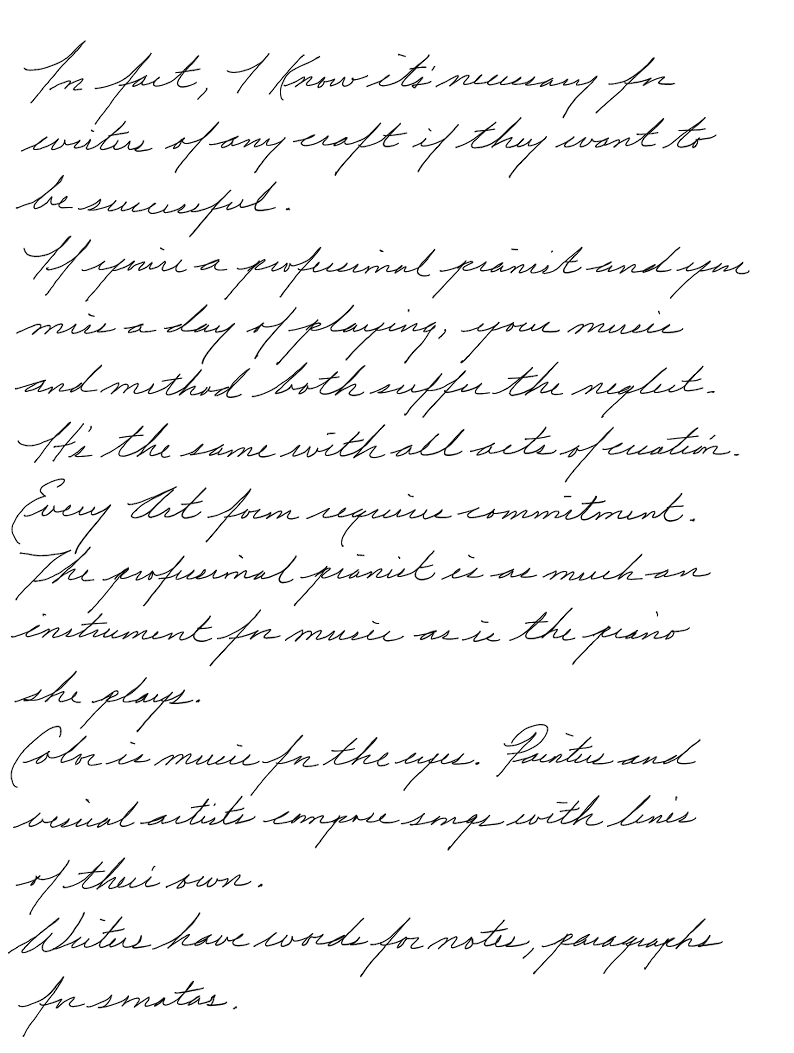 In fact, I Know it's necessary for
writers of any craft if they want to
be successful.
If you're a professional pianist and you
miss a day of playing, your music
and method both suffer the neglect.
It's the same with all acts of creation.
Every Art form requires commitment.
The professional pianist is as much an
instrument for music as is the piano
she plays.
Color is music for the eyes. Painters and
visual artists compose songs with lines
of their own.
Writers have words for notes, paragraphs
for sonatas.